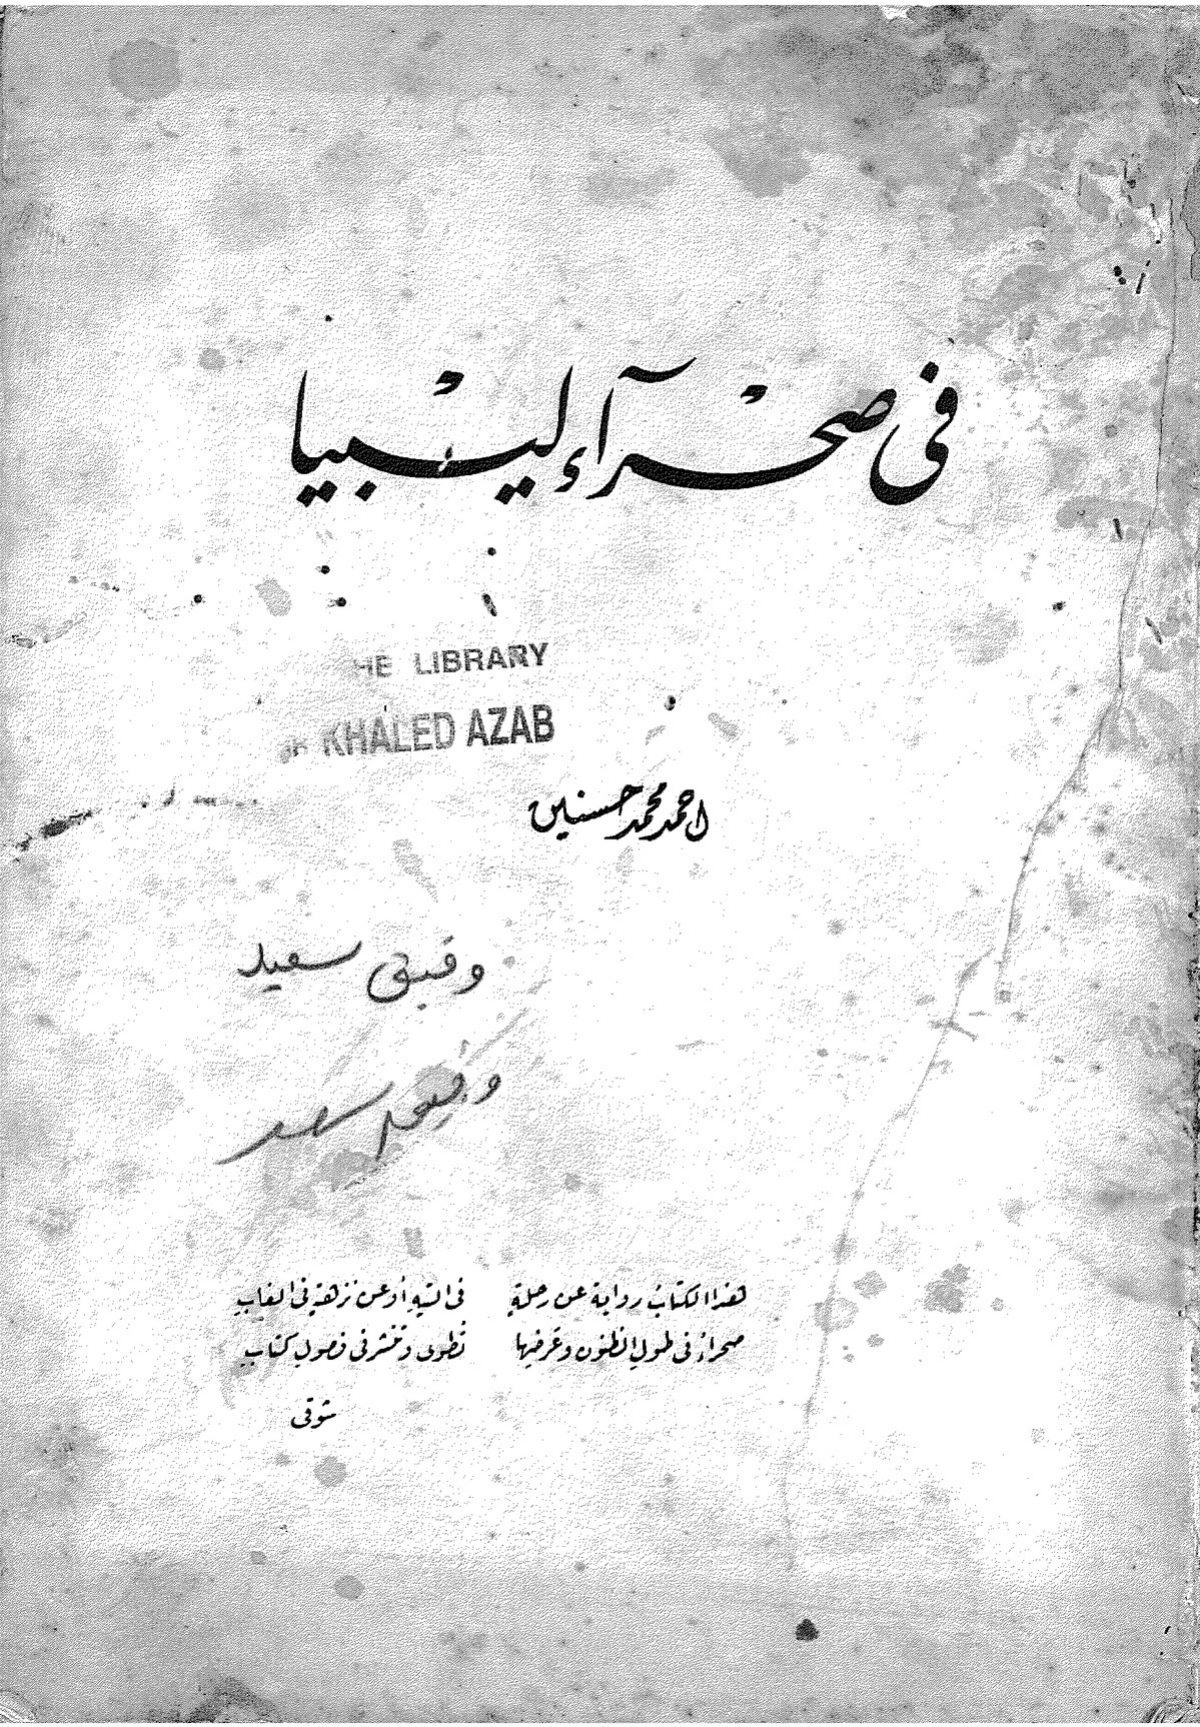 فى صحرآء ليبيا
THE LIBRARY
OF KHALED AZAB
احمد محمد حسنين
سعيد
هذا الكتابُ رواية عن رحلةٍ فى التيهِ أو عن نزهةٍ فى الغابِ
صحراءُ فى طولِ الظنون وعَرضِها تُطوى وتنشر فى فصولِ كتابِ
شوقى